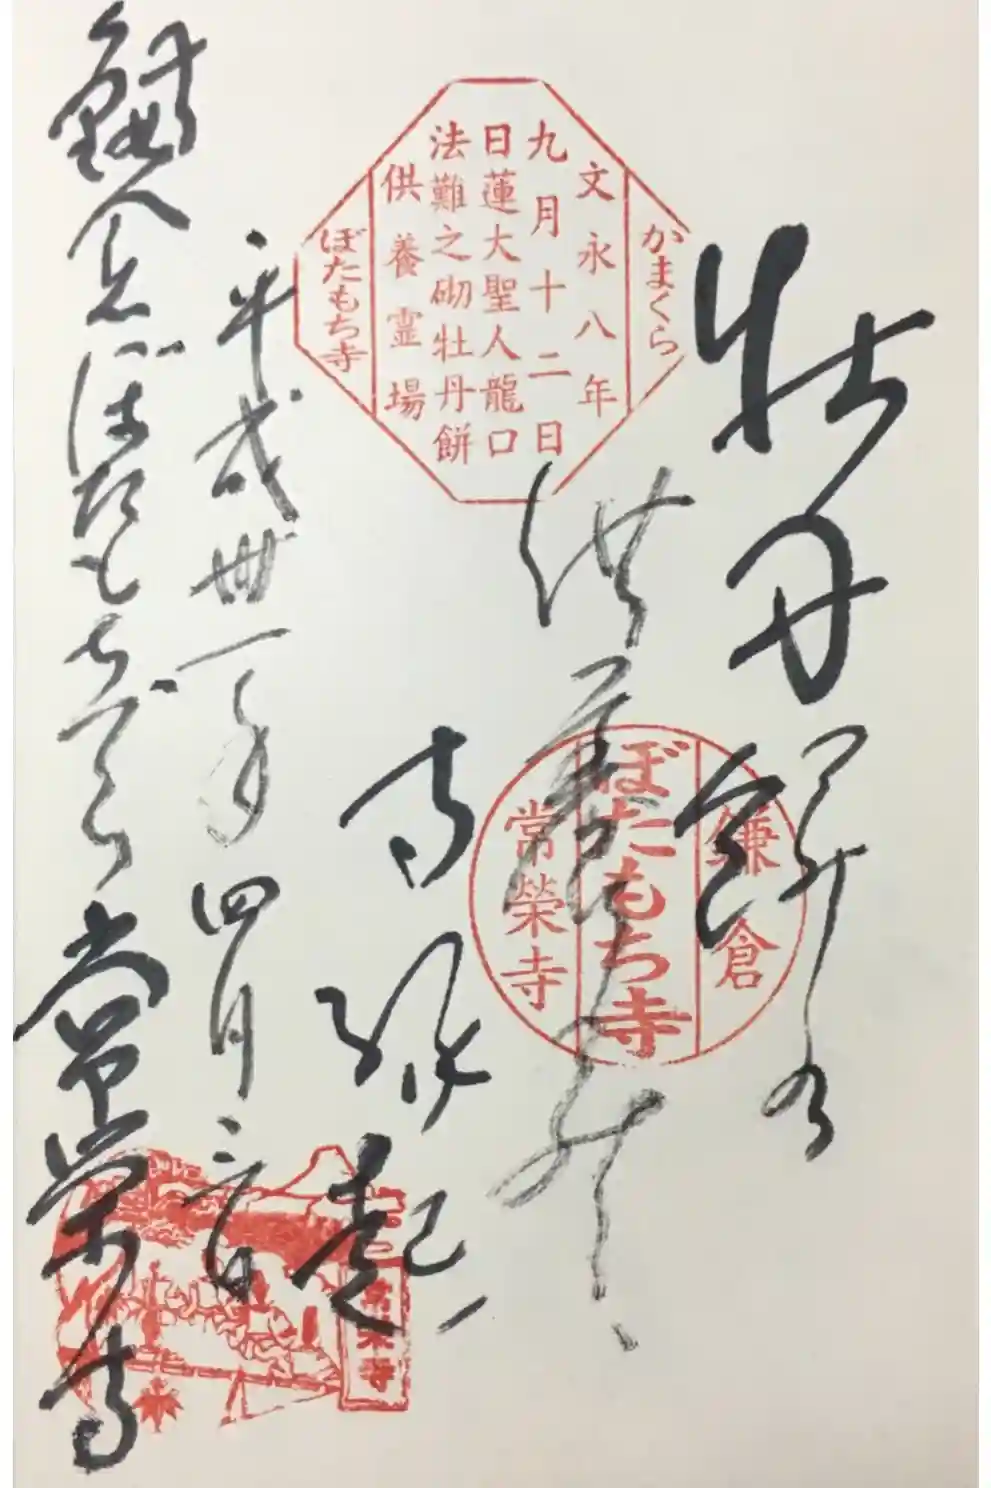 牡丹餅の
供養
寺縁起
平成卅一年四月三日
鎌倉ぼたもち寺常栄寺
かまくら
文永八年
九月十二日
日蓮大聖人龍口
法難之砌牡丹餅
供養霊場
ぼたもち寺
鎌倉
ぼたもち寺
常榮寺
常栄寺